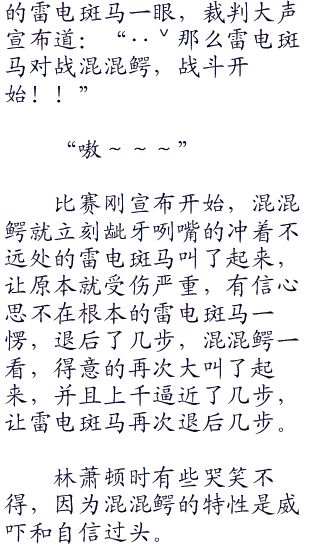 的雷电斑马一眼，裁判大声
宣布道：“··ˇ那么雷电斑
马对战混混鳄，战斗开
始！！”
“嗷～～～”
比赛刚宣布开始，混混
鳄就立刻龇牙咧嘴的冲着不
远处的雷电斑马叫了起来，
让原本就受伤严重，有信心
思不在根本的雷电斑马一
愣，退后了几步，混混鳄一
看，得意的再次大叫了起
来，并且上千逼近了几步，
让雷电斑马再次退后几步。
林萧顿时有些哭笑不
得，因为混混鳄的特性是威
吓和自信过头。